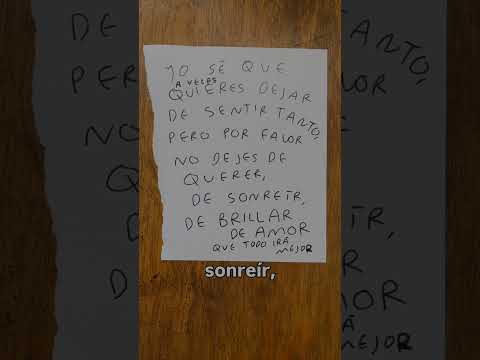 YO SÉ QUE
A VECES
QUIERES DEJAR
DE SENTIR TANTO,
PERO POR FAVOR
NO DEJES DE
QUERER,
DE SONREÍR,
DE BRILLAR
DE AMOR
QUE TODO IRÁ
MEJOR
sonreír,